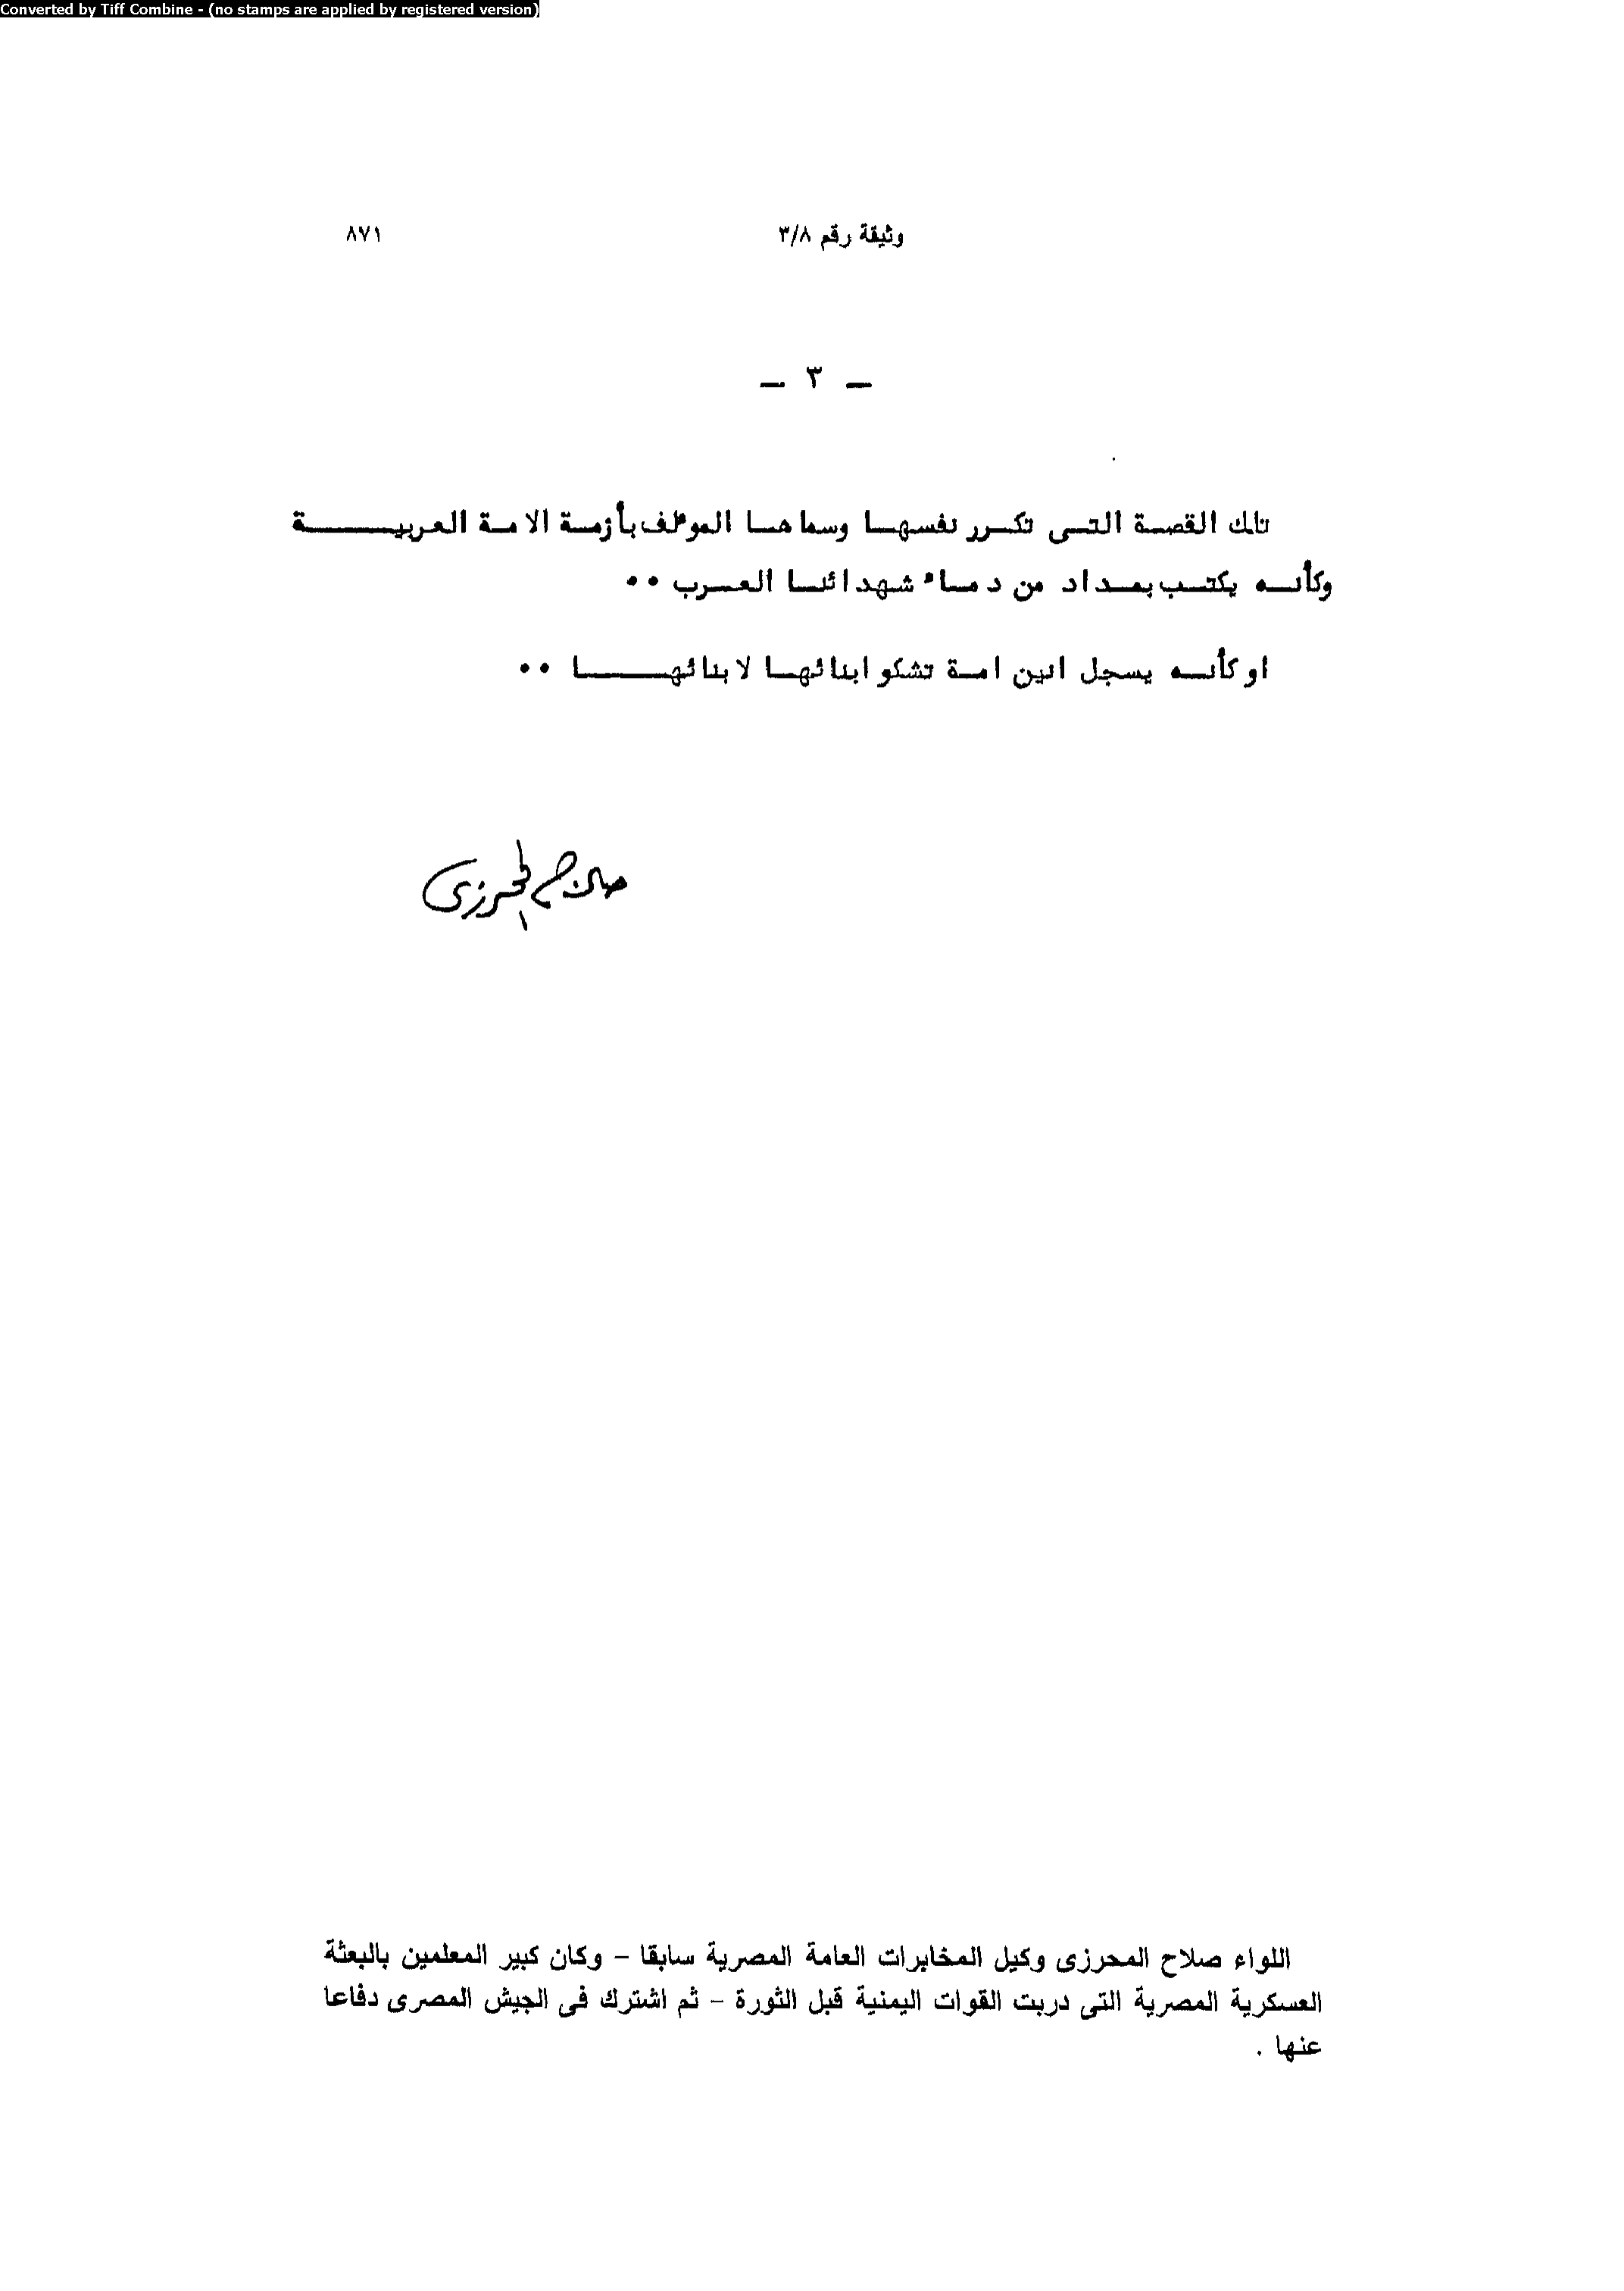 Converted by Tiff Combine - (no stamps are applied by registered version)
وثيقة رقم ٣/٨ ٨٧١
ـ ٣ ـ
تلك القصة التى تكرر نفسها وسماها الموءلف بأزمة الامة العربية
وكأنه يكتب بمداد من دماء شهدائنا العرب ••
او كأنه يسجل انين امة تشكو ابنائها لابنائها ••
صلاح المحرزى
اللواء صلاح المحرزى وكيل المخابرات العامة المصرية سابقا – وكان كبير المعلمين بالبعثة
العسكرية المصرية التى دربت القوات اليمنية قبل الثورة – ثم اشترك فى الجيش المصرى دفاعا
عنها .